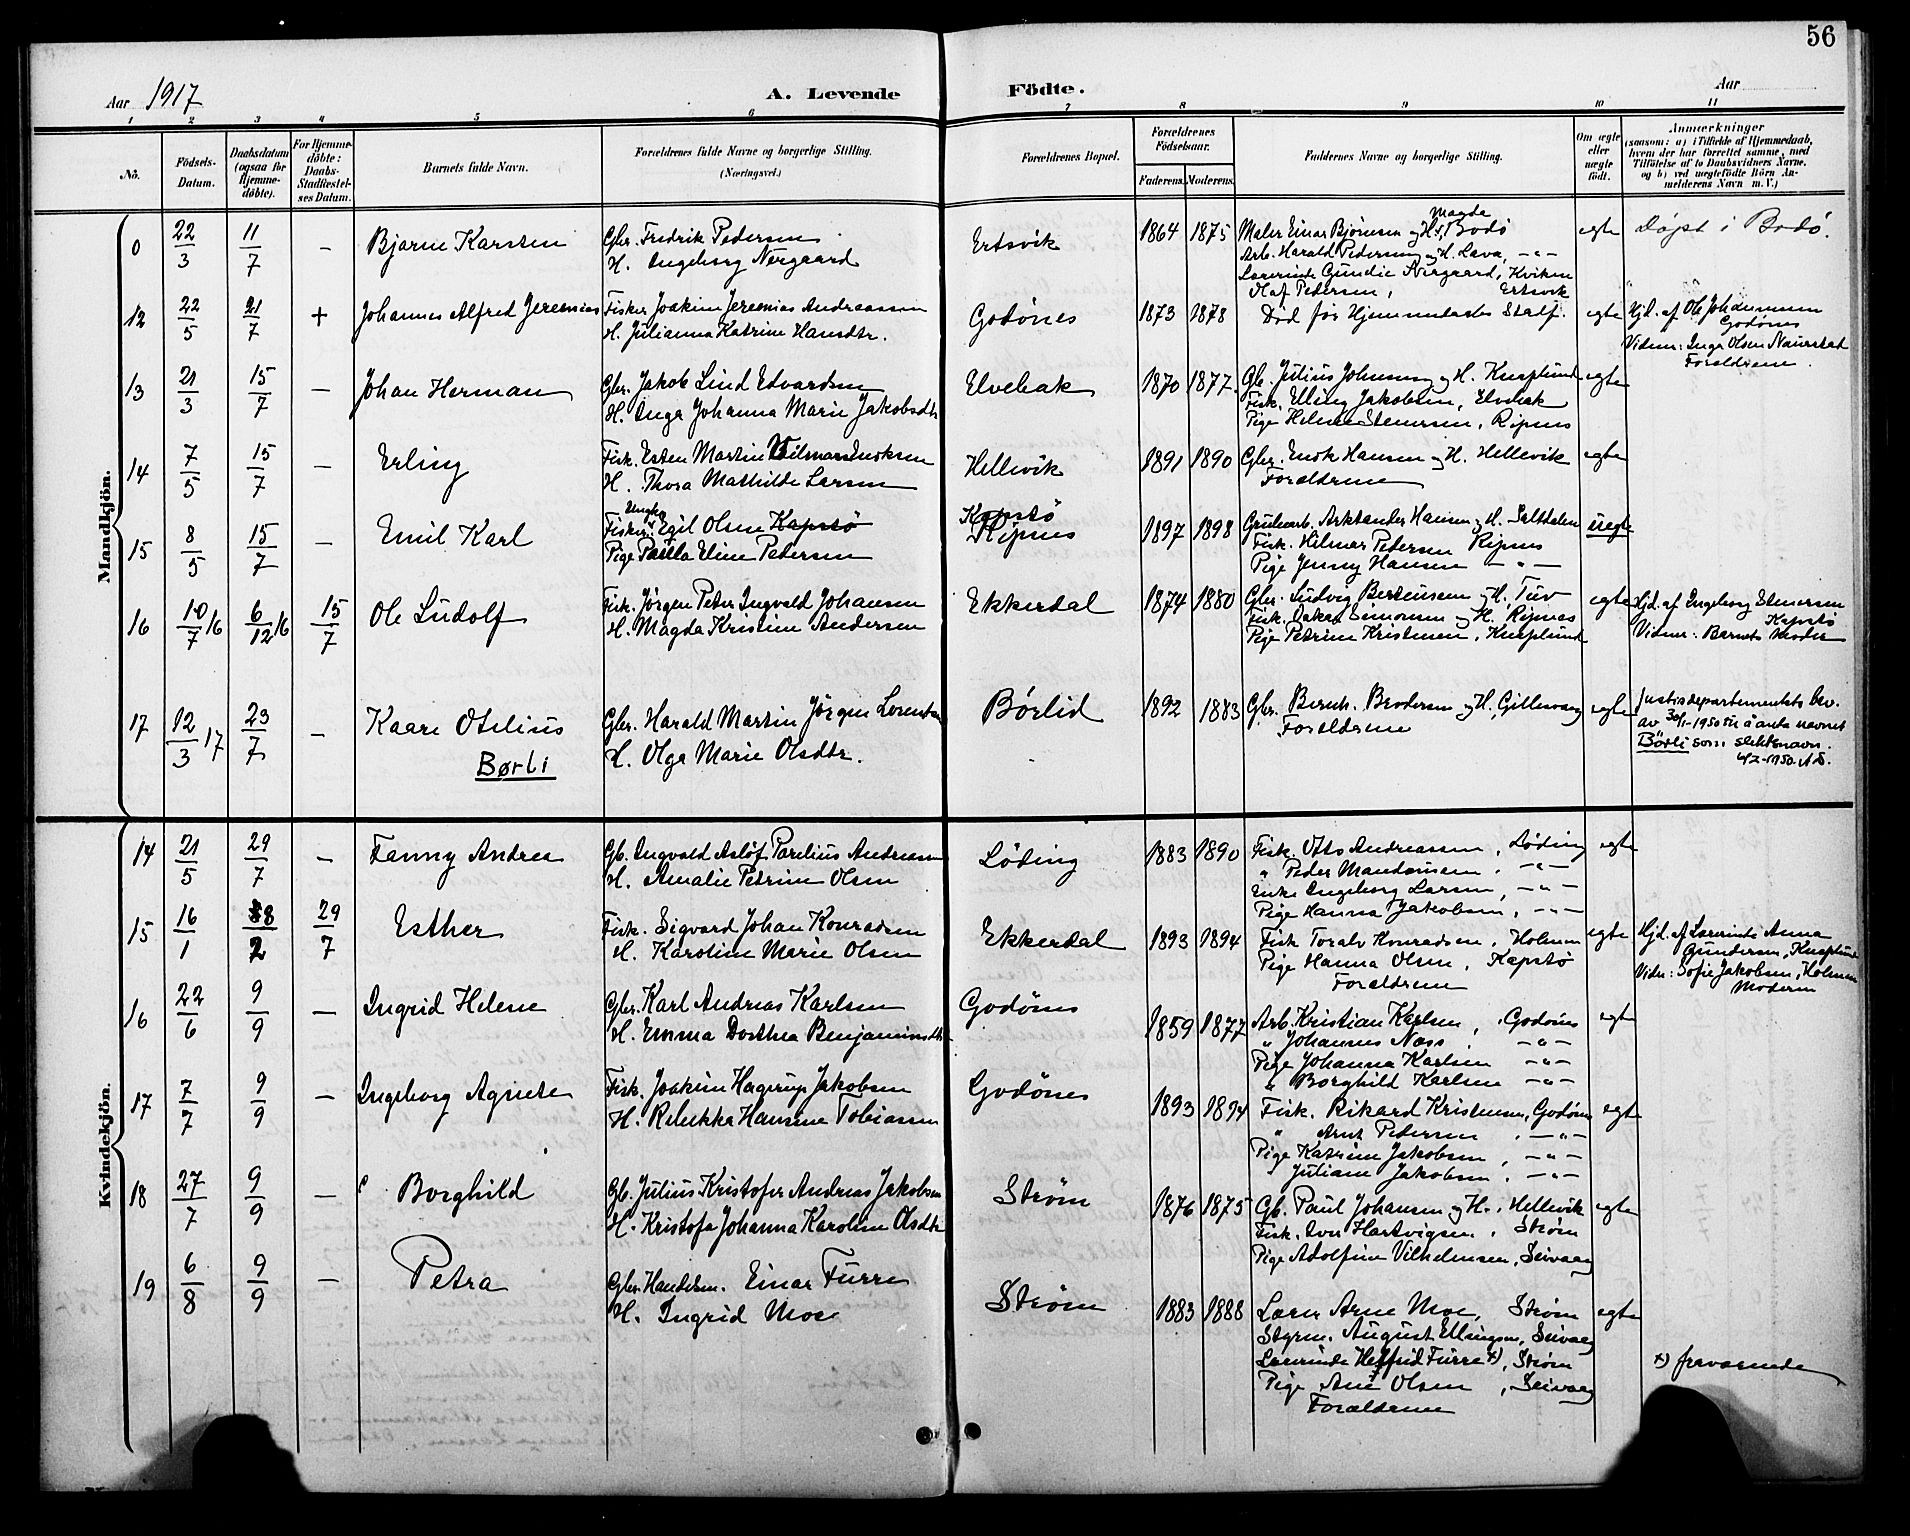 56
Aar 1917
A. Levende
Födte.
Aar
1 2 3 4 5 6 7 8 9 10 11
No.
Födsels-Datum.
Daabsdatum (ogsaa for Hjemme-döbte).
For Hjemme-döbte: Daabs-Stadfæstel-ses Datum.
Barnets fulde Navn.
Forældrenes fulde Navne og borgerlige Stilling.
(Næringsvei.)
Forældrenes Bopæl.
Forældrenes Födselsaar.
Faderens. Moderens.
Faddernes Navne og borgerlige Stilling.
Om ægte eller uægte födt.
Anmærkninger
(saasom: a) i Tilfælde af Hjemmedaab,
hvem der har forrettet samme, med
Tilföielse af to Daabsvidners Navne.
og b) ved uægtefödte Börn An-
melderens Navn m. V.)
Mandkjön.
0 22/3 11/7 – Bjarne Karsten
Gbr. Fredrik Pedersen
H. Ingeborg Nergaard
Ertsvik 1864 1875
Magda
Maler Einar Bjørnsen og H., Bodø
Arb. Harald Pedersen og H. Lava, -"-
Lærerinde Gundie Nergaard, Kvikne
Olaf Pedersen, Ertsvik
egte Døpt i Bodø.
12 22/5 21/7 + Johannes Alfred Jeremias
Fisker Joakim Jeremias Andreassen
H. Julianna Katrine Hansdtr.
Godønes 1873 1878
Død før Hjemmedaabs Stadf.
egte Hjd. af Ole Johannesen
Godønes
Vidner: Inga Olsen Naurstad
Forældrene.
13 21/3 15/7 – Johan Herman
Gbr. Jakob Lind Edvardsen
H. Inga Johanna Marie Jakobsdtr
Elvebak 1870 1877.
Gb. Julius Johnsen og H. Knaplund
Fisk. Elling Jakobsen, Elvebak
Pige Helene Stenersen, Ripnes
egte
14 7/5 15/7 – Erling
Fisk. Esten Martin Vilmar Enoksen
H. Thora Mathilde Larsen
Hellevik 1891 1890
Gbr. Enok Hansen og H. Hellevik
Forældrene
egte
15 8/5 15/7 – Emil Karl
Ungkar
Fisker Egil Olsen Kapstø
Pige Paula Eline Petersen
Kapstø
Ripnes 1897 1898
Grubearb. Arktander Hansen og H. Saltdalen
Fisk. Hilmar Petersen Ripnes
Pige Jenny Hansen -"-
uegte
16 10/7 16 6/12 16 15/7 Ole Ludolf
Fisk. Jørgen Peter Ingvald Johansen
H. Magda Kristine Andersen
Ekkerdal 1874 1880
Gbr. Ludvig Berntinsen og H., Tuv
Fisk. Oskar Simonsen og H. Ripnes
Pige Petrine Kristensen, Knaplund
egte Hjd. af Ingeborg Stenersen
Kapstø
Vidner: Barnets Moder
17 12/3 17 23/7 – Kaare Otelius
Børli
Gbr. Harald Martin Jörgen Lorentsen
H. Olga Marie Olsdtr.
Børlid 1892 1883
Gbr. Bernh. Brodersen og H., Gillesvaag
Forældrene
egte Justisdepartementets bev.
av 30/1-1950 til å anta navnet
Børli som slektsnavn.
4/2-1950. AS.
Kvindekjön.
14 21/5 29/7 – Fanny Andrea
Gb. Ingvald Asløf Parelius Andreassen
H. Amalie Petrine Olsen
Løding 1883 1890
Fisk. Otto Andreassen, Løding
" Peder Mandorsen, -"-
Enke Ingeborg Larsen, -"-
Pige Hanna Jakobsen, -"-
egte
15 16/1 8/2 29/7 Esther
Fisk. Sigvard Johan Konradsen
H. Karoline Marie Olsen
Ekkerdal 1893 1894
Fisk Toralv Konradsen, Holmen
Pige Hanna Olsen, Kapstø
Forældrene
egte Hjd. af Lærerinde Anna
Gundersen, Knaplund
Vidn: Sofie Jakobsen, Holmen
Moderen
16 22/6 9/9 – Ingrid Helene
Gbr. Karl Andreas Karlsen
H. Emma Dorthea Benjaminsdtr
Godønes 1859 1877
Arb. Kristian Karlsen, Godønes
" Johannes Næss, -"-
Pige Johanna Karlsen -"-
" Borghild Karlsen -"-
egte
17 7/7 9/9 – Ingeborg Agnete
Fisk. Joakim Hagerup Jakobsen
H. Rebekka Hansine Tobiassen
Godønes 1893 1894
Fisk. Rikard Kristensen, Godønes
" Arnt Pedersen, -"-
Pige Katrine Jakobsen, -"-
" Juliane Jakobsen, -"-
egte
18 27/7 9/9 – Borghild
Gb. Julius Kristofer Andreas Jakobsen
H. Kristofa Johanna Karoline Olsdtr
Strøm 1876 1875
Gb. Paul Johansen og H., Hellevik
Fisk. Iver Hartvigsen, Strøm
Pige Adolfine Vilhelmsen, Seivaag
egte
19 6/8 9/9 – Petra
Gbr. Handelsm. Einar Furre
H. Ingrid Moe
Strøm 1883 1888
Lærer Arne Moe, Strøm
Styrm. August Ellingsen, Seivaag
Lærerinde Helfrid Furre x), Strøm
Pige Ane Olsen, Seivaag
Forældrene
egte
x) fraværende